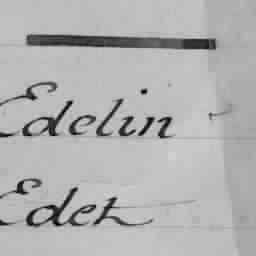 Edelin
Edet